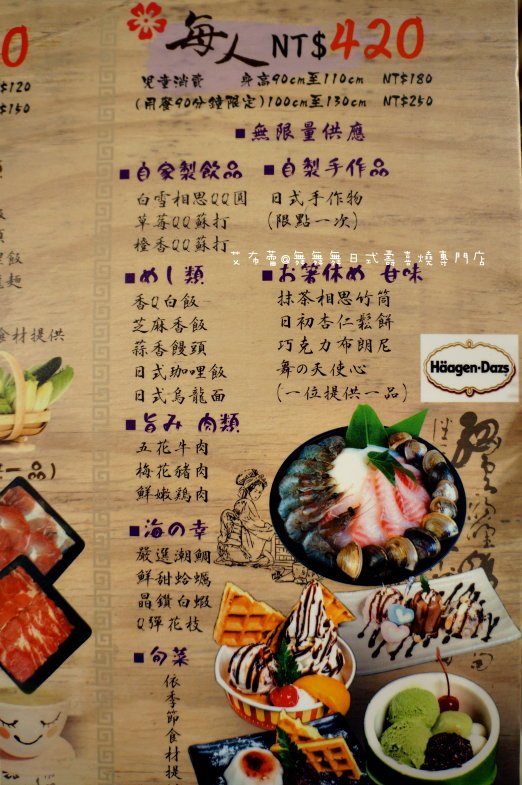 0
$120
$150
每人 NT$420
兒童消費 身高90cm至110cm NT$180
(用餐90分鐘限定)100cm至130cm NT$250
■無限量供應
■自家製飲品
白雪相思QQ圓
草莓QQ蘇打
橙香QQ蘇打
■自製手作品
日式手作物
(限點一次)
艾布蕾@舞舞舞日式壽喜燒專門店
■めし類
香Q白飯
芝麻香飯
蒜香饅頭
日式咖哩飯
日式烏龍面
■お箸休め 甘味
抹茶相思竹筒
日初杏仁鬆餅
巧克力布朗尼
舞の天使心
(一位提供一品)
Häagen-Dazs
■旨み 肉類
五花牛肉
梅花豬肉
鮮嫩雞肉
■海の幸
嚴選潮鯛
鮮甜蛤蠣
晶鑽白蝦
Q彈花枝
■旬菜
依季節食材提
飯
麵
食材提供
一品)